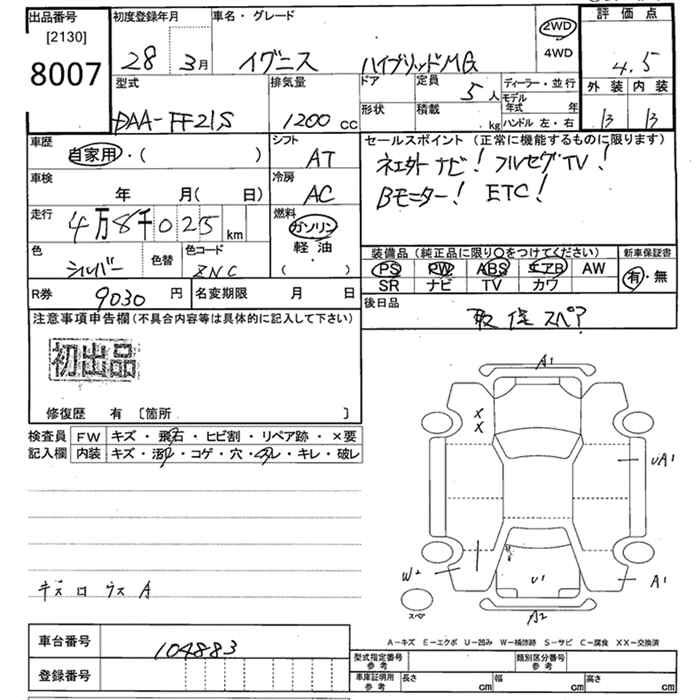 出品番号 初度登録年月 車名・グレード 2WD 評価点
[2130]
8007 28 3月 イグニス ハイブリッドMG 4WD 4.5
型式 排気量 ドア 定員 5人 ディーラー・並行 外装 内装
DAA-FF21S 1200cc 形状 積載 kg モデル年式 年 B B
ハンドル 左・右
車歴 シフト セールスポイント(正常に機能するものに限ります)
自家用・( ) AT フルセグTV!
車検 冷房 Bモニター! ETC!
年 月( 日) AC
走行 4万8千025km 燃料 ガソリン
軽油
( )
色 シルバー 色替 色コード ZNC
装備品(純正品に限り○をつけてください) 新車保証書
PS PW ABS エアB AW 有・無
SR ナビ TV カワ
R券 9030円 名変期限 月 日 後日品
取 保 スペア
注意事項申告欄(不具合内容等は具体的に記入して下さい)
初出品
修復歴 有 [箇所 ]
検査員 FW キズ・飛石・ヒビ割・リペア跡・×要
記入欄 内装 キズ・汚れ・コゲ・穴・スレ・キレ・破レ
A1
X
X
UA1
W2
U1
A1
スペア
A2
A-キズ E-エクボ U-凹み W-補修跡 S-サビ C-腐食 XX-交換済
車台番号 104883
型式指定番号 参考 類別区分番号 参考
登録番号 車庫証明用 参考 長さ cm 幅 cm 高さ cm